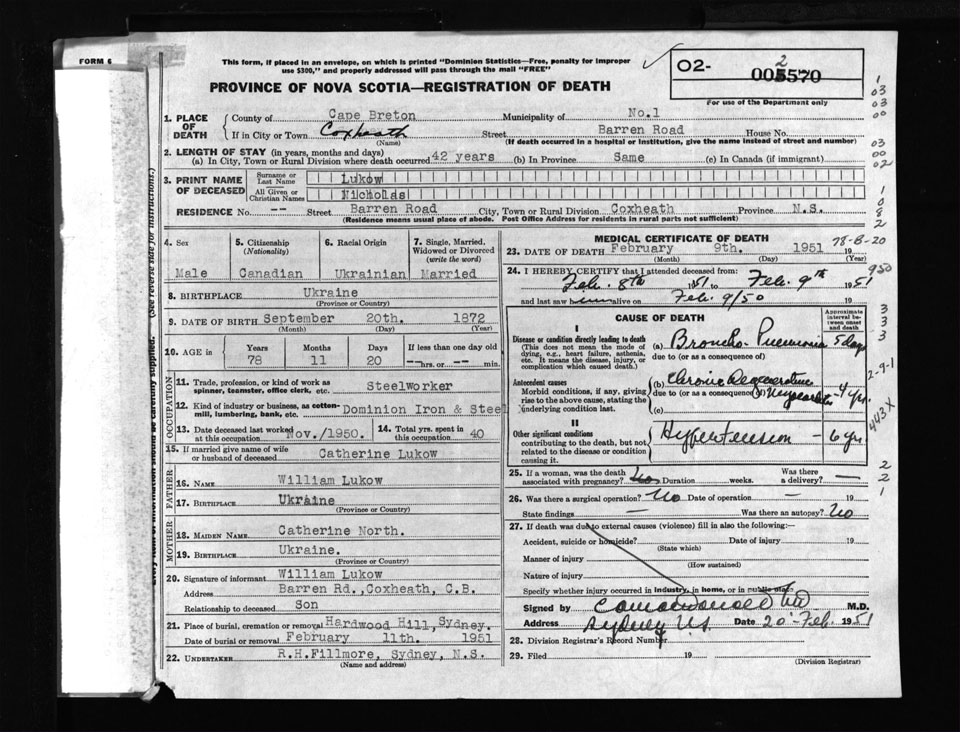 FORM 6
This form, if placed in an envelope, on which is printed "Dominion Statistics—Free, penalty for improper
use $300," and properly addressed will pass through the mail "FREE"
PROVINCE OF NOVA SCOTIA—REGISTRATION OF DEATH
O2- 2
005570
For use of the Department only
1. PLACE OF DEATH
County of Cape Breton Municipality of No.1
If in City or Town Coxheath Street Barren Road House No.
(Name) (If death occurred in a hospital or institution, give the name instead of street and number)
2. LENGTH OF STAY (in years, months and days)
(a) In City, Town or Rural Division where death occurred 42 years (b) In Province Same (c) In Canada (if immigrant)
3. PRINT NAME OF DECEASED
Surname or Last Name Lukow
All Given or Christian Names Nicholas
RESIDENCE No. -- Street Barren Road City, Town or Rural Division Coxheath Province N.S.
(Residence means usual place of abode. Post Office Address for residents in rural parts not sufficient)
4. Sex
Male
5. Citizenship
(Nationality)
Canadian
6. Racial Origin
Ukrainian
7. Single, Married, Widowed or Divorced
(write the word)
Married
8. BIRTHPLACE Ukraine
(Province or Country)
9. DATE OF BIRTH September 20th. 1872
(Month) (Day) (Year)
10. AGE in Years Months Days If less than one day old
78 11 20 --- hrs. or --- min.
OCCUPATION
11. Trade, profession, or kind of work as
spinner, teamster, office clerk, etc. SteelWorker
12. Kind of industry or business, as cotton-
mill, lumbering, bank, etc. Dominion Iron & Steel
13. Date deceased last worked
at this occupation Nov./1950.
14. Total yrs. spent in
this occupation 40
15. If married give name of wife
or husband of deceased Catherine Lukow
FATHER
16. NAME William Lukow
17. BIRTHPLACE Ukraine
(Province or Country)
MOTHER
18. MAIDEN NAME Catherine North.
19. BIRTHPLACE Ukraine.
(Province or Country)
20. Signature of informant William Lukow
Address Barren Rd.,Coxheath, C.B.
Relationship to deceased Son
21. Place of burial, cremation or removal Hardwood Hill, Sydney.
Date of burial or removal February 11th. 1951
22. UNDERTAKER R.H.Fillmore, Sydney, N.S.
(Name and address)
MEDICAL CERTIFICATE OF DEATH
78-8-20
23. DATE OF DEATH February 9th. 1951 19
(Month) (Day) (Year)
24. I HEREBY CERTIFY that I attended deceased from:
Feb. 8th 1951 to Feb. 9th 1951
and last saw him alive on Feb. 9/50 19
CAUSE OF DEATH
Approximate interval between onset and death
I
Disease or condition directly leading to death
(This does not mean the mode of
dying, e.g., heart failure, asthenia,
etc. It means the disease, injury, or
complication which caused death.)
(a) Broncho-Pneumonia 5 days
due to (or as a consequence of)
Antecedent causes
Morbid conditions, if any, giving
rise to the above cause, stating the
underlying condition last.
(b) Chronic Degenerative
due to (or as a consequence of) Myocarditis - 4 yrs.
(c)
II
Other significant conditions
contributing to the death, but not
related to the disease or condition
causing it.
Hypertension - 6 yrs.
25. If a woman, was the death
associated with pregnancy? No Duration weeks. Was there
a delivery? —
26. Was there a surgical operation? No Date of operation — 19
State findings — Was there an autopsy? No
27. If death was due to external causes (violence) fill in also the following:—
Accident, suicide or homicide? Date of injury 19
(State which)
Manner of injury
(How sustained)
Nature of injury
Specify whether injury occurred in industry, in home, or in public place
Signed by M.D.
Address Sydney N.S. Date 20 - Feb. 1951
28. Division Registrar's Record Number
29. Filed 19
(Division Registrar)
(See reverse side for instructions.)
1
03
03
00
03
00
02
1
0
8
2
950
3
3
3
2-9-1
443X
2
2
1